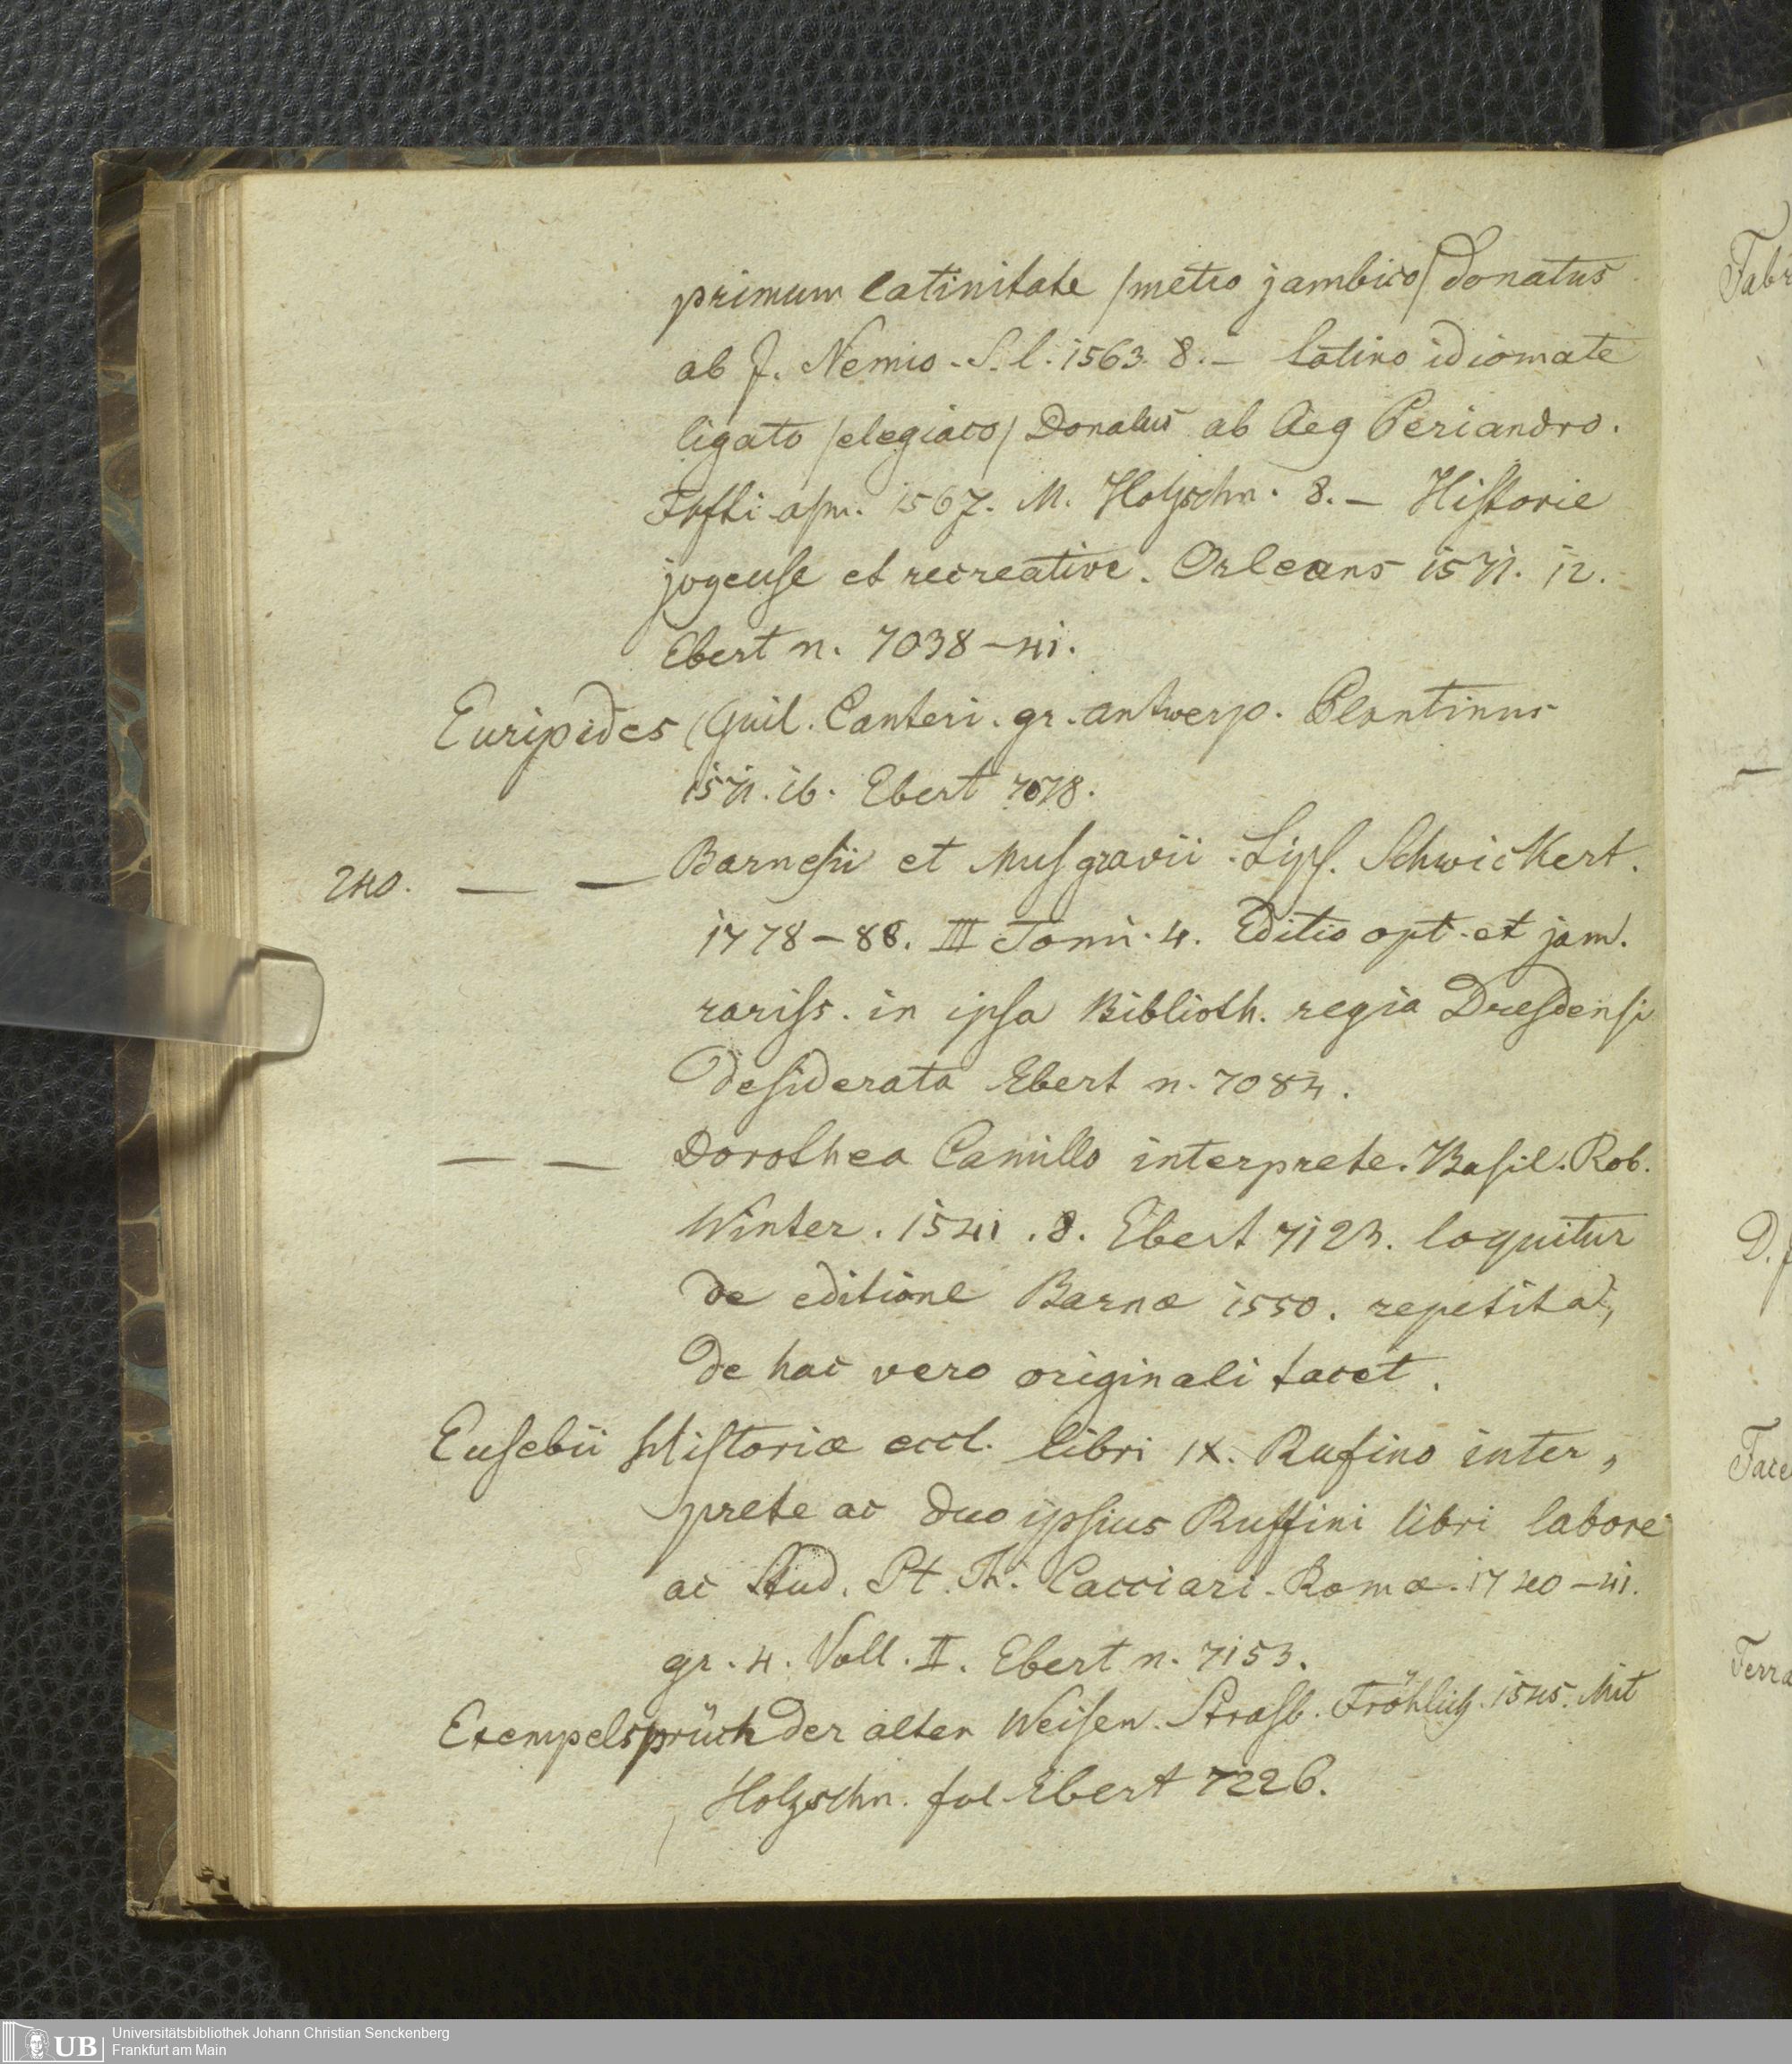 primum latinitate /metro jambico/ donatus
ab J. Nemio. S. l. 1563. 8. – latino idiomate
ligato /elegiaco/ Donatus ab Aeg Periandro.
Frfti a/m. 1567. M. Holzschn. 8. – Historie
joyeuse et recreative. Orleans 1571. 12.
Ebert n. 7038–41.
Euripides Guil. Canteri. gr. antwerp. Plantinus
1571. 16. Ebert 7078.
240. — — Barnesii et Musgravii. Lips. Schwickert.
1778–88. III Tomi. 4. Editio opt. et jam.
rariss. in ipsa Biblioth. regia Dresdensi
desiderata Ebert n. 7084.
— — Dorothea Camillo interprete. Basil. Rob.
Winter. 1541. 8. Ebert 7123. loquitur
de editione Barnæ 1550. repetita,
de hac vero originali tacet.
Eusebii Historiæ eccl. libri IX. Rufino inter,
prete ac duo ipsius Ruffini libri labore
ac stud. Pt. Th. Cacciari. Romæ. 1740–41.
gr. 4. Voll. II. Ebert n. 7153.
Exempelsprüch der alten Weisen. Strasb. Fröhlich. 1545. Mit
Holzschn. fol Ebert 7226.
Fabr
D.
Face
Terra
UB Universitätsbibliothek Johann Christian Senckenberg
Frankfurt am Main